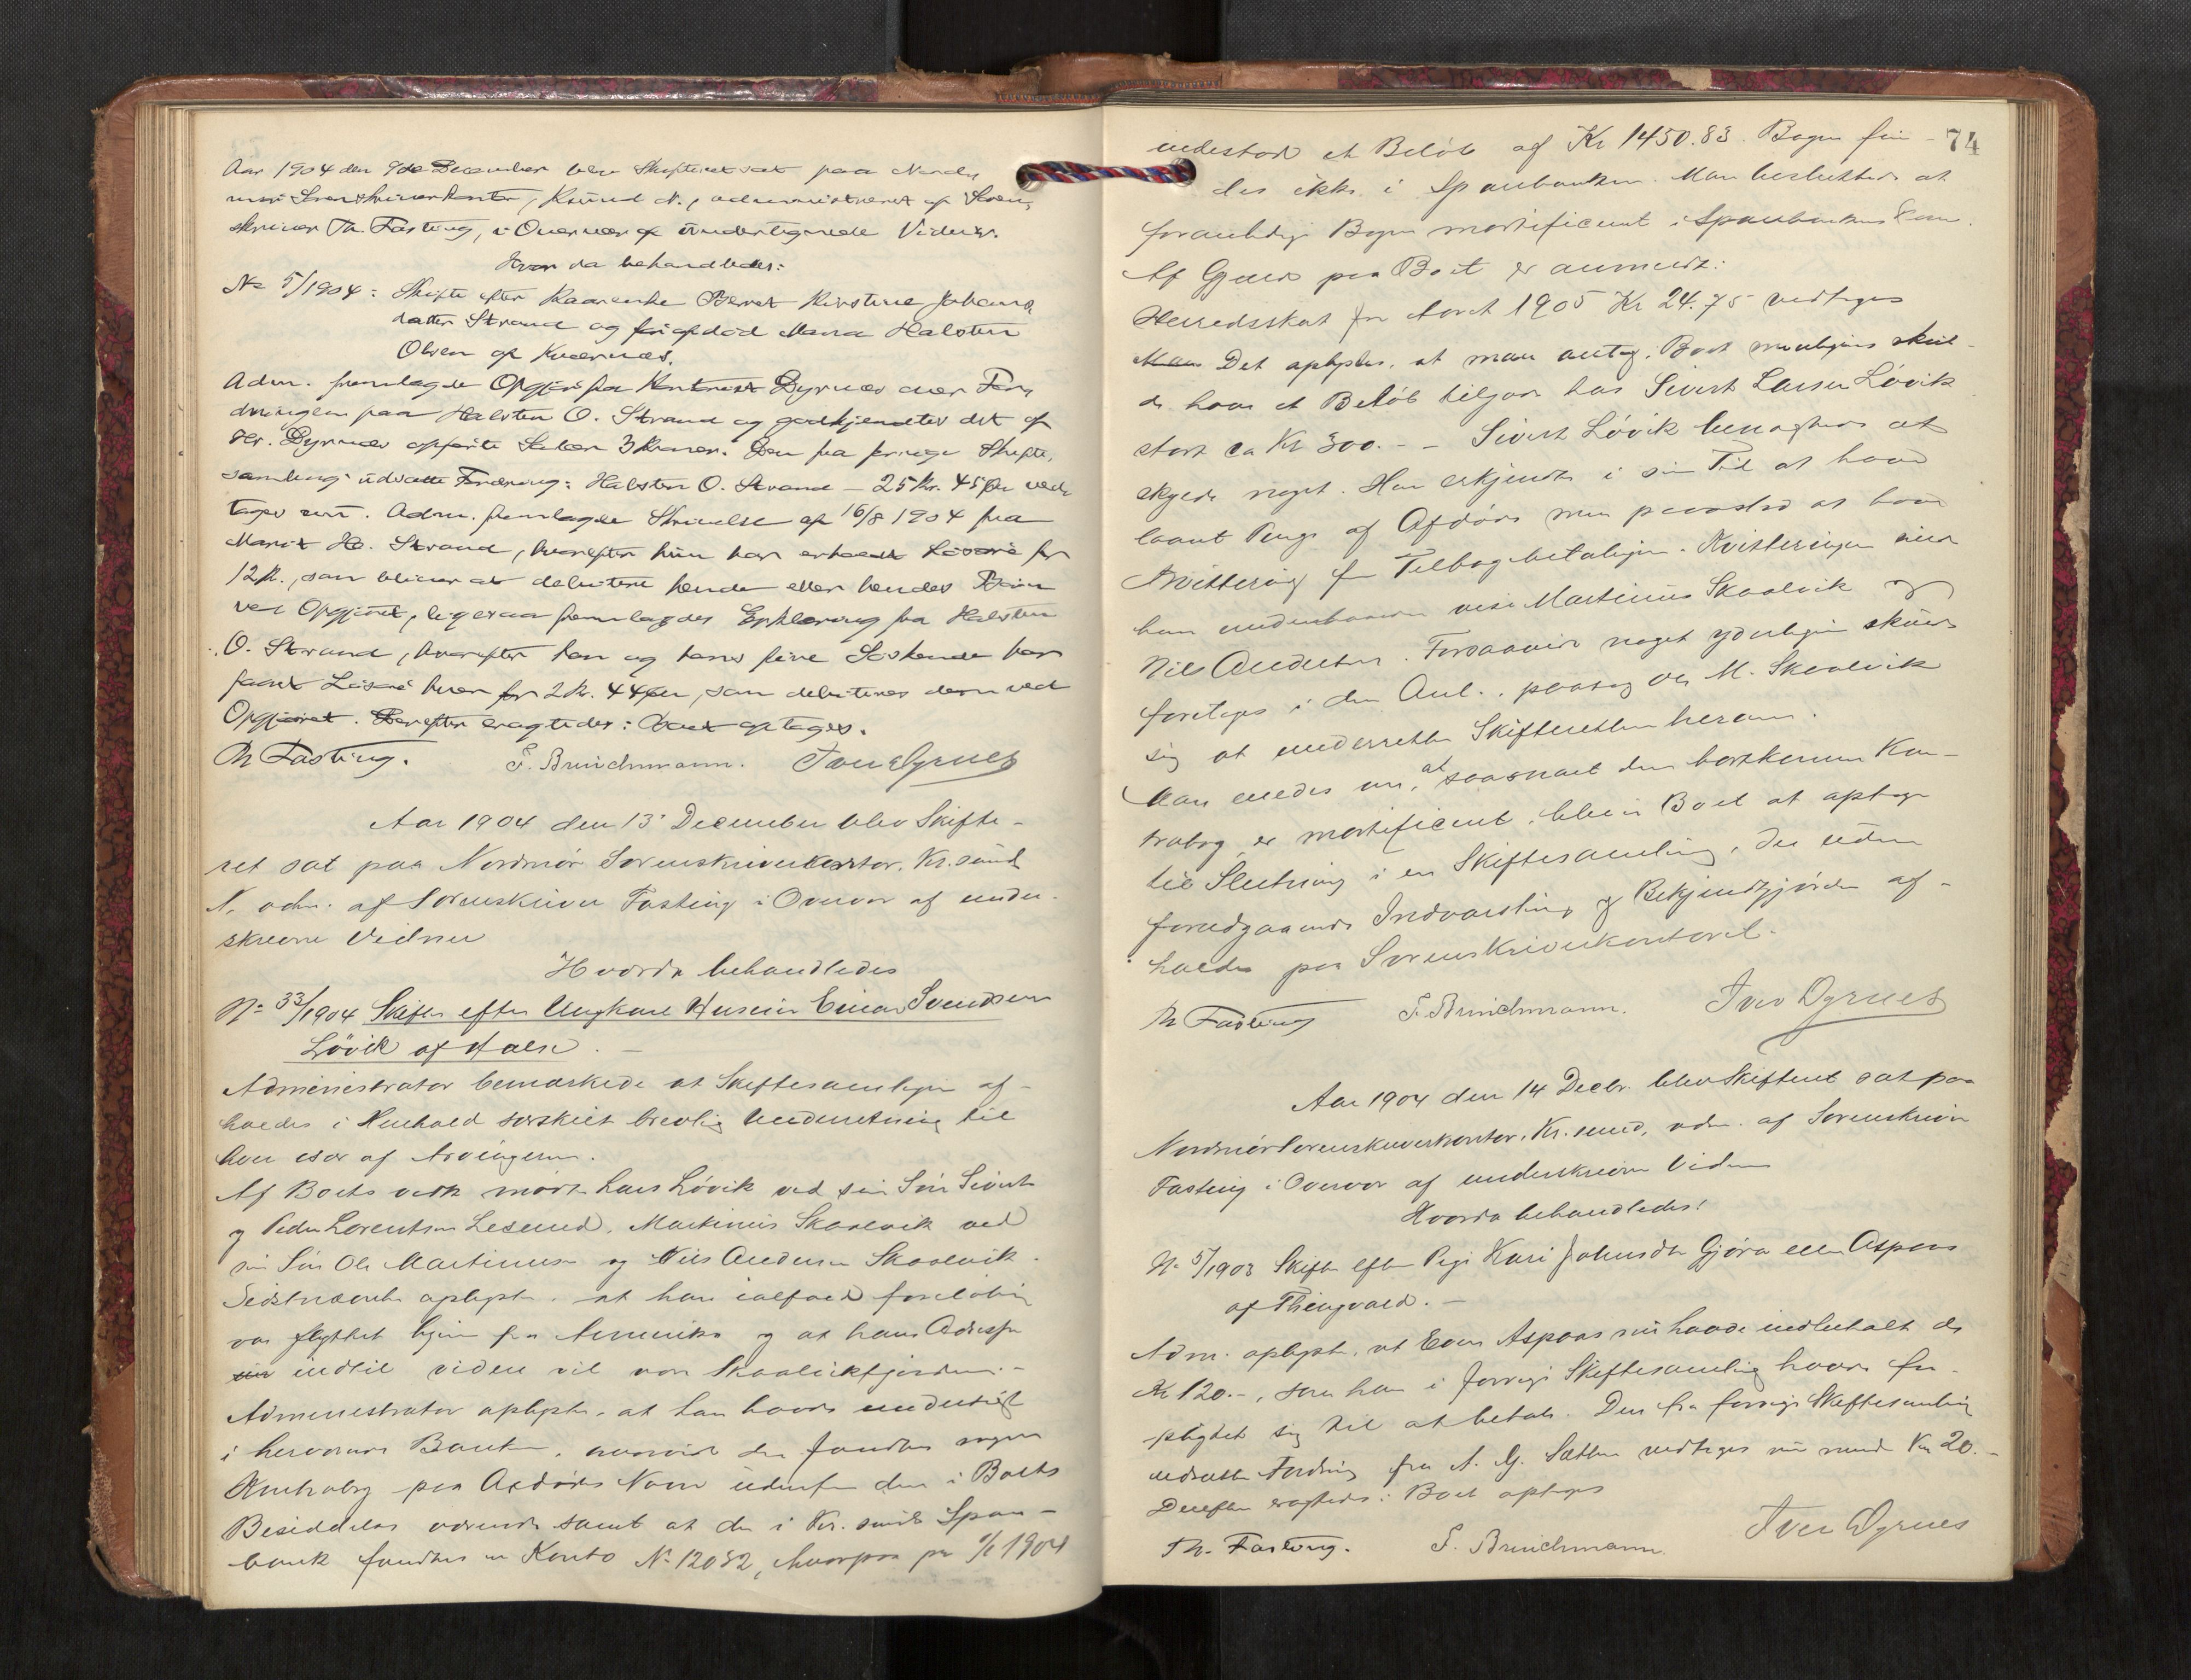 Aar 1904 den 9de December blev Skifteret sat paa Nord-
møre Sorenskriverkontor, Krsund N., administreret af Soren-
skriver Th. Fasting, i Overvær af undertegnede Vidner.
Hvor da behandledes:
No 5/1904: Skifte efter Kaarenke Beret Kirstine Johans-
datter Strand og Mand Halsten
Olsen af Kvernæs.
Adm. fremlagde Opgjør fra Dyrnes over For-
dringen paa Halsten O. Strand og godkjendtes det af
Hr. Dyrnes opførte Salær 3 Kroner. Den fra forrige Skifte-
samling udsatte Fordring: Halsten O. Strand – 25 Kr. 45 Øre ved-
toges nu. Adm. fremlagde Skrivelse af 16/8 1904 fra
Marit H. Strand, hvorefter hun har erholdt Løsøre for
12 K., som bliver at debitere hende eller hendes Børn
ved Opgjøret, ligesaa fremlagdes Erklæring fra Halsten
O. Strand, hvorefter han og hans fire Søskende har
faaet Løsøre hver for 2 K. 44 Øre, som debiteres dem ved
Opgjøret. Herefter eragtedes: Boet optages.
Th Fasting. F. Brinchmann. Iver Dyrnes
Aar 1904 den 13' December blev Skifte-
ret sat paa Nordmør Sorenskriverkontor, Kr.sund
N, adm. af Sorenskriver Fasting i Overvær af under-
skrevne Vidner
Hvorda behandledes
No 33/1904 Skifte efter Ungkarl Einar Svendsen
Løvik af Halse. –
Administrator bemærkede at Skiftesamlingen af-
holdes i Henhold særskilt brevlig Underretning til
hver især af Arvingerne.
Af Boets vedk mødte Lars Løvik ved sin Søn Sivert
og Peder Lorentsen Lesund, Martinus Skaalvik ved
sin Søn Ole Martinusen og Nils Andersen Skaalvik.
Sidstnævnte oplyste, at han ialfald foreløbig
var flyttet hjem fra Amerika og at hans Adresse
indtil videre vil være Skaalvikfjorden. –
Administrator oplyste, at han havde undersøgt
i herværende Banker, hvorvidt der fandtes nogen
Kontrabog paa Afdødes Navn udenfor den i Boets
Besiddelse værende samt at der i Kr. sunds Spare-
bank fandtes en Konto No 12032, hvorpaa pr 1/1 1904
74
indestod et Beløb af Kr 1450.83. Bogen fin-
des ikke i Sparebanken. Man besluttede at
foranledige Bogen mortificeret i Sparebankens
Af Gjæld paa Boet er anmeldt:
Herredsskat for Aaret 1905 Kr 24.75 vedtoges
Det oplyses, at man antog, Boet muligens skul-
de have et Beløb tilgode hos Sivert Larsen Løvik
stort ca Kr 300. – – Sivert Løvik benægtede at
skylde noget. Han erkjendte i sin Tid at have
laant Penge af Afdøde men paastod at have
Kvittering for Tilbagebetalingen. Kvitteringen vil
han vise Martinus Skaalvik og
Nils Andersen. Forsaavidt noget yderligere skulde
foretages i den Anl., paatog Ole M. Skaalvik
sig at underrette Skifteretten herom.
Man enedes om, at saasnart den bortkomne Kon-
trabog er mortificeret, bliver Boet at optage
til Slutning i en Skiftesamling, der uden
foregaaende Indvarsling og Bekjendtgjørelse af-
holdes paa Sorenskriverkontoret.
Th Fasting F. Brinchmann. Iver Dyrnes
Aar 1904 den 14 Decbr. blev Skifteret sat paa
Nordmør Sorenskriverkontor, Kr.sund, adm. af Sorenskriver
Fasting i Overvær af underskrevne Vidner
Hvorda behandledes!
No 5/1903 Skifte efter Pige Kari Johnsdtr Gjøra eller Aspaas
af Thingvold. –
Adm. oplyste, at Even Aspaas nu havde indbetalt de
Kr 120.–, som han i forrige Skiftesamling havde for-
pligtet sig til at betale. Den fra forrige Skiftesamling
udsatte Fordring fra A. G. Sættem vedtoges nu med Kr 20.–
Derefter eragtedes: Boet optages
Th. Fasting. F. Brinchmann. Iver Dyrnes